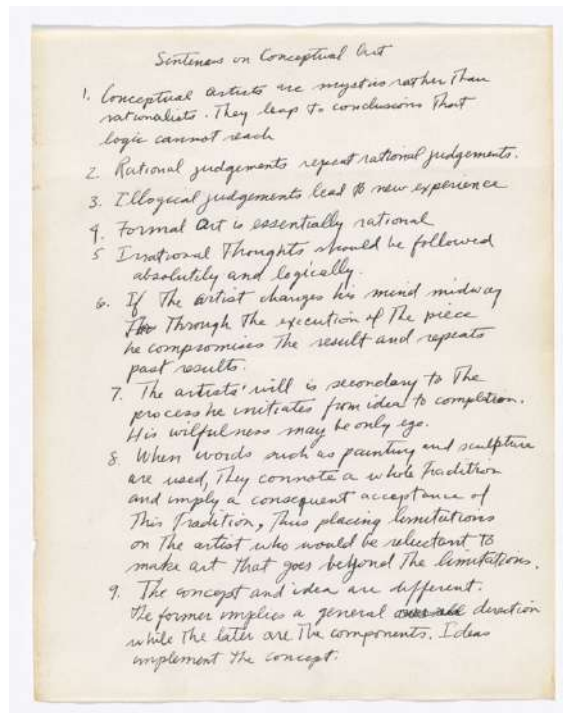 Sentences on Conceptual Art
1. Conceptual artists are mystics rather than
rationalists. They leap to conclusions that
logic cannot reach
2. Rational judgements repeat rational judgements.
3. Illogical judgements lead to new experience
4. Formal Art is essentially rational
5 Irrational Thoughts should be followed
absolutely and logically.
6. If the artist changes his mind midway
through the execution of the piece
he compromises the result and repeats
past results.
7. The artists' will is secondary to the
process he initiates from idea to completion.
His wilfulness may be only ego.
8. When words such as painting and sculpture
are used, they connote a whole tradition
and imply a consequent acceptance of
this tradition, thus placing limitations
on the artist who would be reluctant to
make art that goes beyond the limitations.
9. The concept and idea are different.
The former implies a general direction
while the later are the components. Ideas
implement the concept.